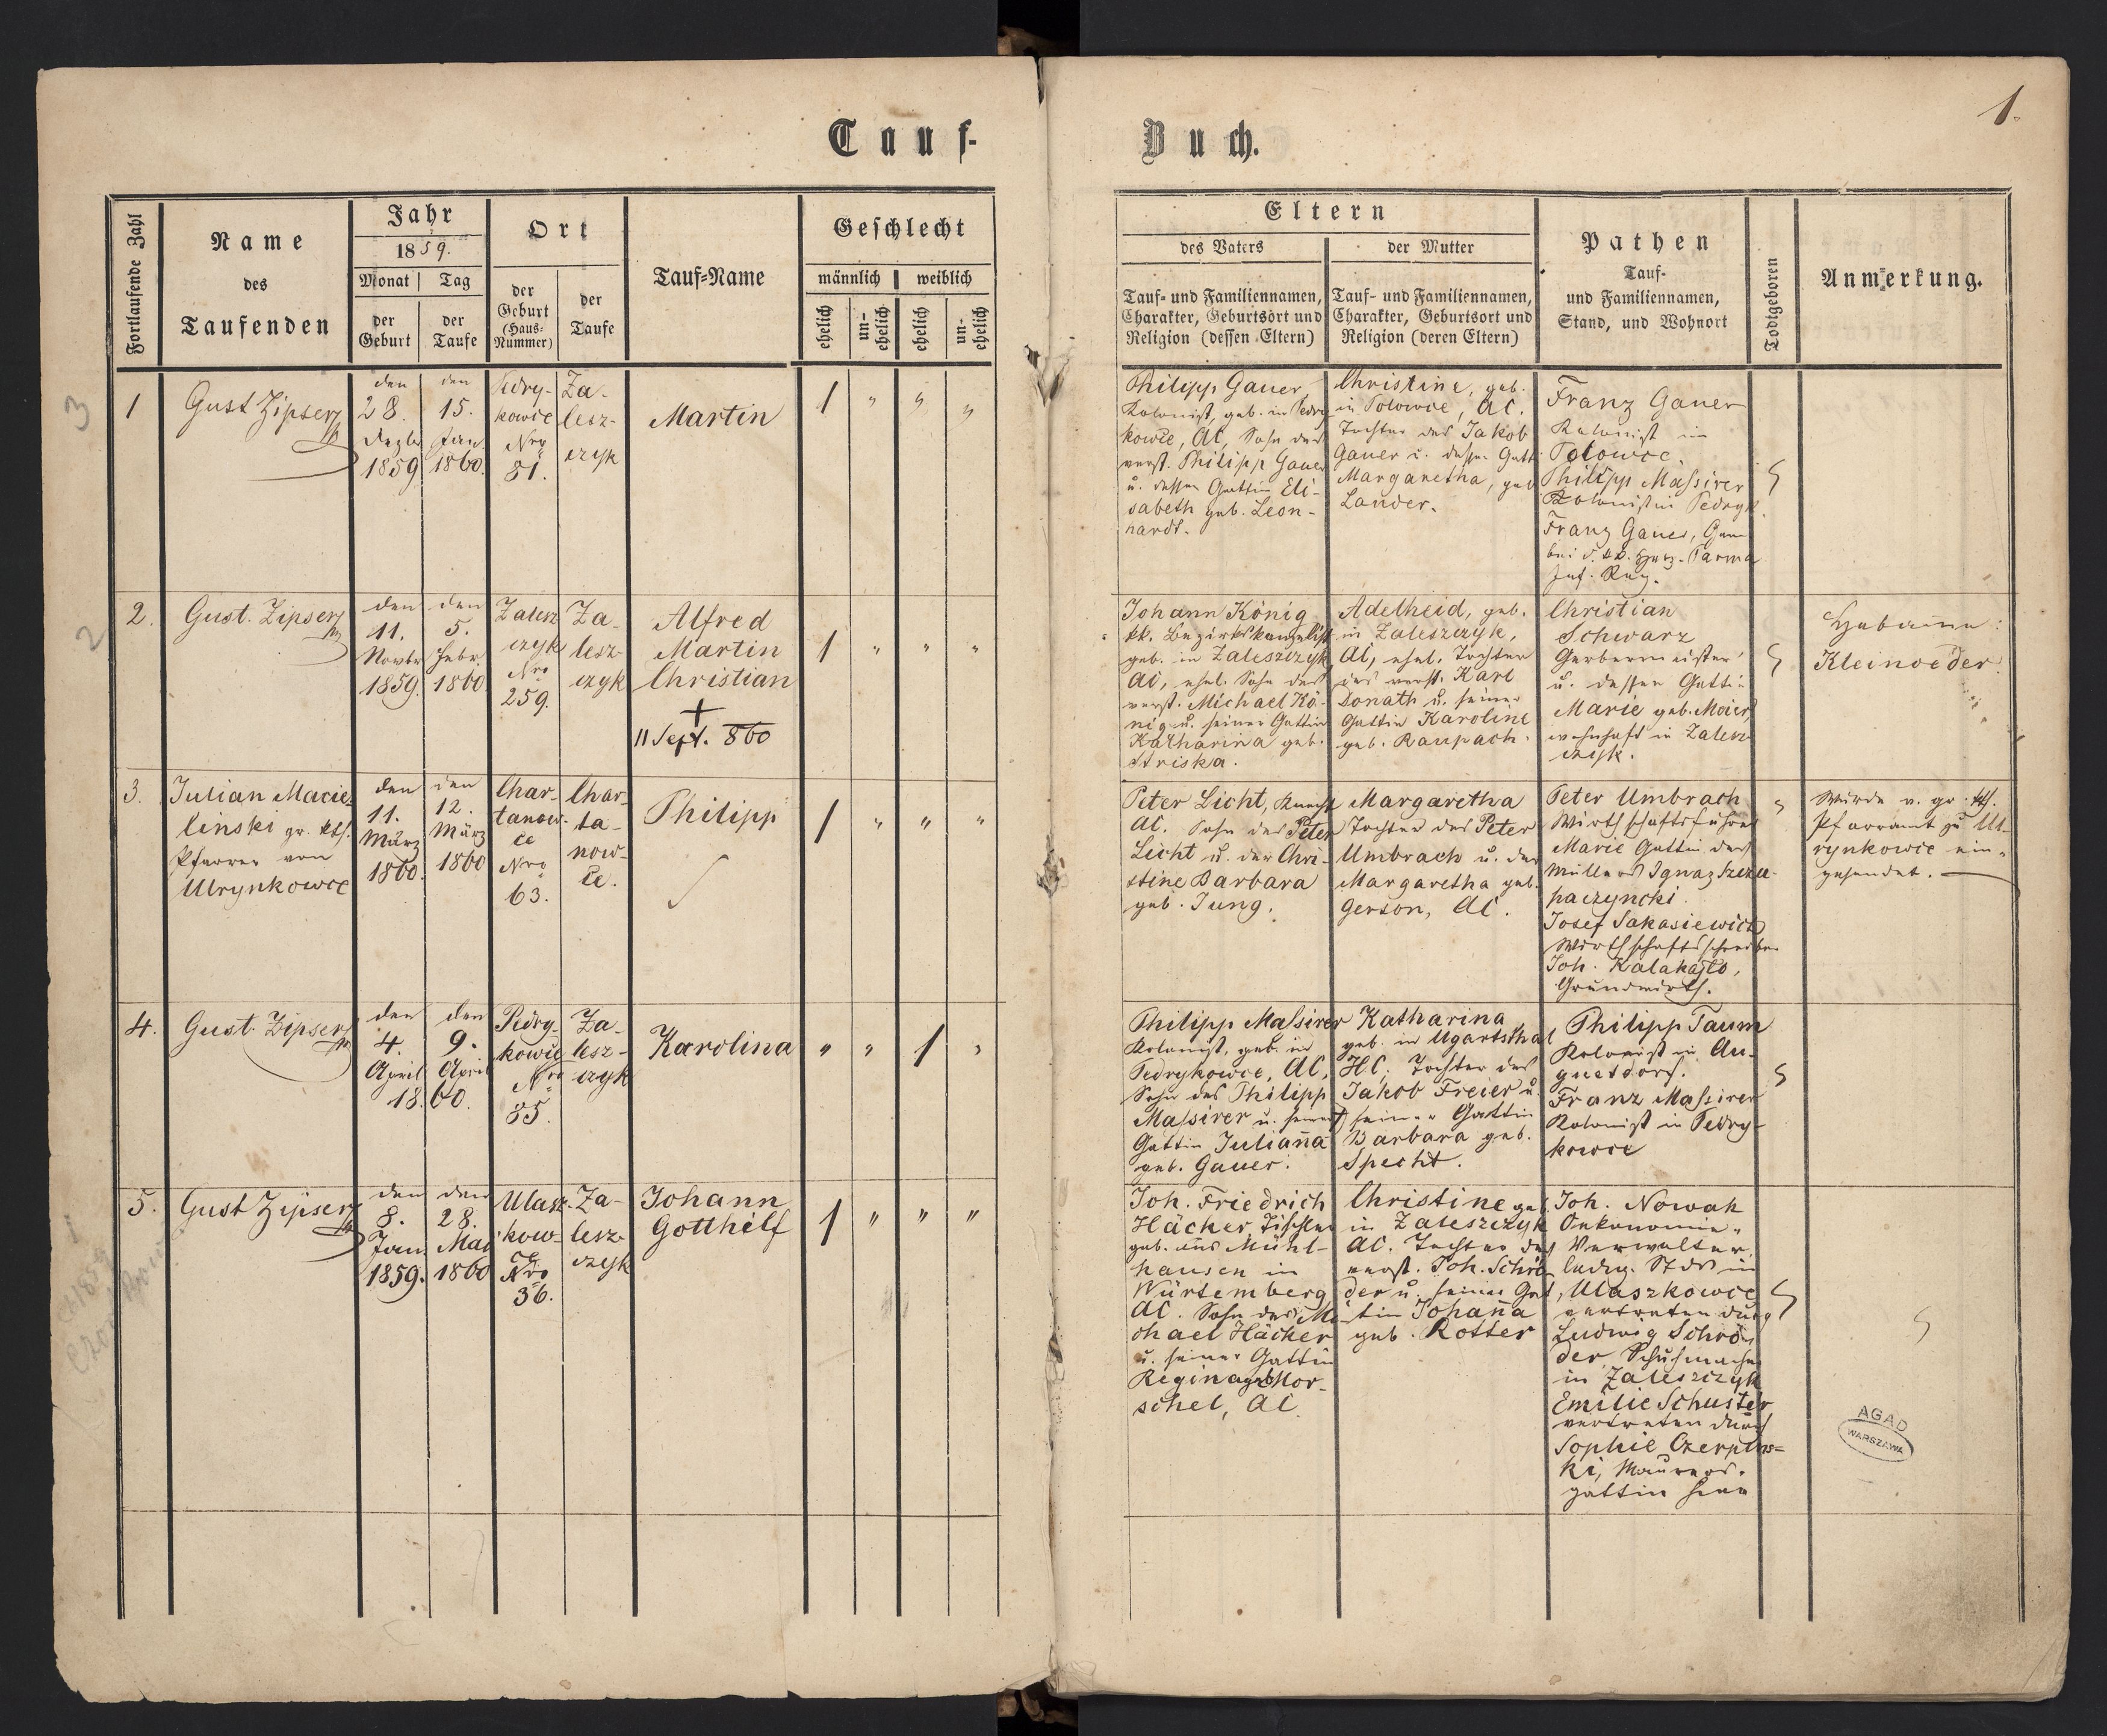 Tauf-
Buch.
1.
Fortlaufende Zahl
Name
des
Taufenden
Jahr
1859.
Monat
Tag
der
Geburt
der
Taufe
Ort
der
Geburt
(Haus-
Nummer)
der
Taufe
Tauf-Name
Geschlecht
männlich
weiblich
ehelich
un-
ehelich
ehelich
un-
ehelich
Eltern
des Vaters
der Mutter
Tauf- und Familiennamen,
Charakter, Geburtsort und
Religion (dessen Eltern)
Tauf- und Familiennamen,
Charakter, Geburtsort und
Religion (deren Eltern)
Pathen
Tauf-
und Familiennamen,
Stand, und Wohnort
Todtgeboren
Anmerkung.
3
1
Gust Zipser
den
28.
Dezbr
1859
den
15.
Jan.
1860.
Pedry-
kowce
Nro
81.
Za-
lesz-
czyk
Martin
1 " " "
Philipp Gauer
Kolonist, geb. in Pedry
kowce, AC, Sohn des
verst. Philipp Gauer
u. dessen Gattin Eli-
sabeth geb. Leon-
hardt.
Christine, geb.
in Polowce, AC.
Tochter des Jakob
Gauer u. dessen Gatt.
Margaretha, geb
Lander.
Franz Gauer
Kolonist in
Polowce.
Philipp Massirer
Kolonist in Pedryk.
Franz Gauer,
bei d. kk. Parma
Inf. Reg.
2
2.
Gust. Zipser
den
11.
Novbr
1859.
den
5.
Febr.
1860
Zalesz
czyk
Nro
259.
Za-
lesz-
czyk
Alfred
Martin
Christian
+
11 Sept. 860
1 " " "
Johann König
kk. Bezirkskanzelist
geb. in Zaleszczyk
AC, ehel. Sohn des
verst. Michael Kö-
nig u. seiner Gattin
Katharina geb.
Striska.
Adelheid, geb.
in Zaleszczyk,
AC, ehel. Tochter
des verst. Karl
Donath u. seiner
Gattin Karoline
geb. Raupach.
Christian
Schwarz
Gerbermeister
u. dessen Gattin
Marie geb. Maier,
wohnhaft in Zalesz
czyk.
Hebamme:
Kleinoeder
3.
Julian Macie-
linski gr. kth.
Pfarrer von
Ulrynkowce
den
11.
März
1860.
den
12.
März
1860
Char-
tanow-
ce
Nro
63.
Char-
ta-
now-
ce.
Philipp
1 " " "
Peter Licht, Knecht
AC. Sohn des Peter
Licht u. der Chri-
stine Barbara
geb. Jung.
Margaretha
Tochter des Peter
Umbrach u. der
Margaretha geb.
Gerson, AC.
Peter Umbrach
Wirthschaftsführer
Marie Gattin des
Müllers Ignaz Szczu-
paczyncki.
Josef Sakasiewicz
Wirthschaftsschreiber
Joh. Kalakajlo,
Grundwirth.
Wurde v. gr. kth.
Pfarramt zu Ul-
rynkowce ein-
gesendet.
4.
Gust. Zipser
den
4.
April
den
9.
April
1860.
Pedry-
kowce
Nro
85.
Za-
lesz-
czyk
Karolina
" " 1 "
Philipp Massirer
Kolonist, geb. in
Pedrykowce, AC,
Sohn des Philipp
Massirer u. seiner
Gattin Julianna
geb. Gauer.
Katharina
geb. in Ugartsthal
HC; Tochter des
Jakob Freier u.
seiner Gattin
Barbara geb.
Specht.
Philipp Taum
Kolonist in Au-
gustdorf.
Franz Massirer
Kolonist in Pedry-
kowce
5.
Gust Zipser
den
8.
Jan.
1859.
den
28.
Mai
1860
Ulasz-
kow-
ce
Nro
36.
Za-
lesz-
czyk
Johann
Gotthilf
1 " " "
Joh. Friedrich
Häcker, Tischler
geb. aus Mühl-
hausen in
Würtemberg
AC. Sohn des Mi-
chael Häcker
u. seiner Gattin
Regina geb. Mor-
schel, AC
Christine geb.
in Zaleszczyk
AC. Tochter des
verst. Joh. Schrö-
der u. seiner Gat-
tin Johanna
geb. Rotter
Joh. Nowak
Oekonomie-
Verwalter,
in
Ulaszkowce
vertreten durch
Ludwig Schrö-
der, Schuhmacher
in Zaleszczyk
Emilie Schuster
vertreten durch
Sophie Czerplins-
ki, Maurers-
gattin hier
AGAD
WARSZAWA